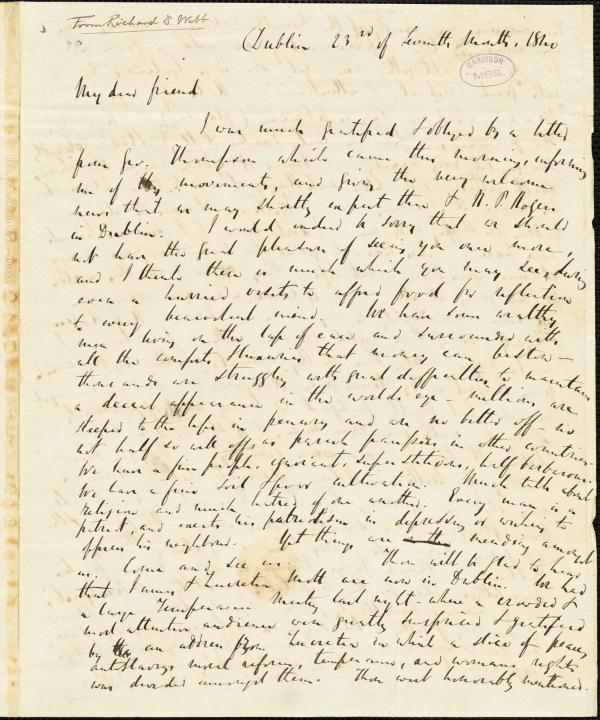 From Richard D. Webb
Dublin 23rd of Seventh Month, 1840
GARRISON
MSS.
My dear friend
I was much gratified & obliged by a letter
from Geo. Thompson which came this morning, informing
me of thy movements, and giving the very welcome
news that we may shortly expect thee & N. P. Rogers
in Dublin. I would indeed be sorry that we should
not have the great pleasure of seeing you once more,
and I think there is much which you may see, during
even a hurried visit to afford food for reflection
to every benevolent mind. We have some wealthy
men living on the lap of ease and surrounded with
all the comforts & luxuries that money can bestow -
thousands are struggling with great difficulties to maintain
a decent appearance in the world's eye - millions are
steeped to the lips in penury and are no better off - no
not half so well off, as parish paupers in other countries.
We have a fine people, ignorant, superstitious, half barbarous.
We have a fine soil & poor cultivation. Much talk about
religion and much hatred of one another. Every man is a
patriot, and exerts his patriotism in depressing or wishing to
oppress his neighbour. Yet things are mending amongst
us. Come and see us. Thou will be glad to hear
that James & Lucretia Mott are now in Dublin. We had
a large Temperance Meeting last night - where a crowded &
most attentive audience were greatly surprised & gratified
by an address from Lucretia in which a slice of peace,
antislavery, moral reform, temperance, and womans rights
was divided amongst them. Thou wert honorably mentioned.